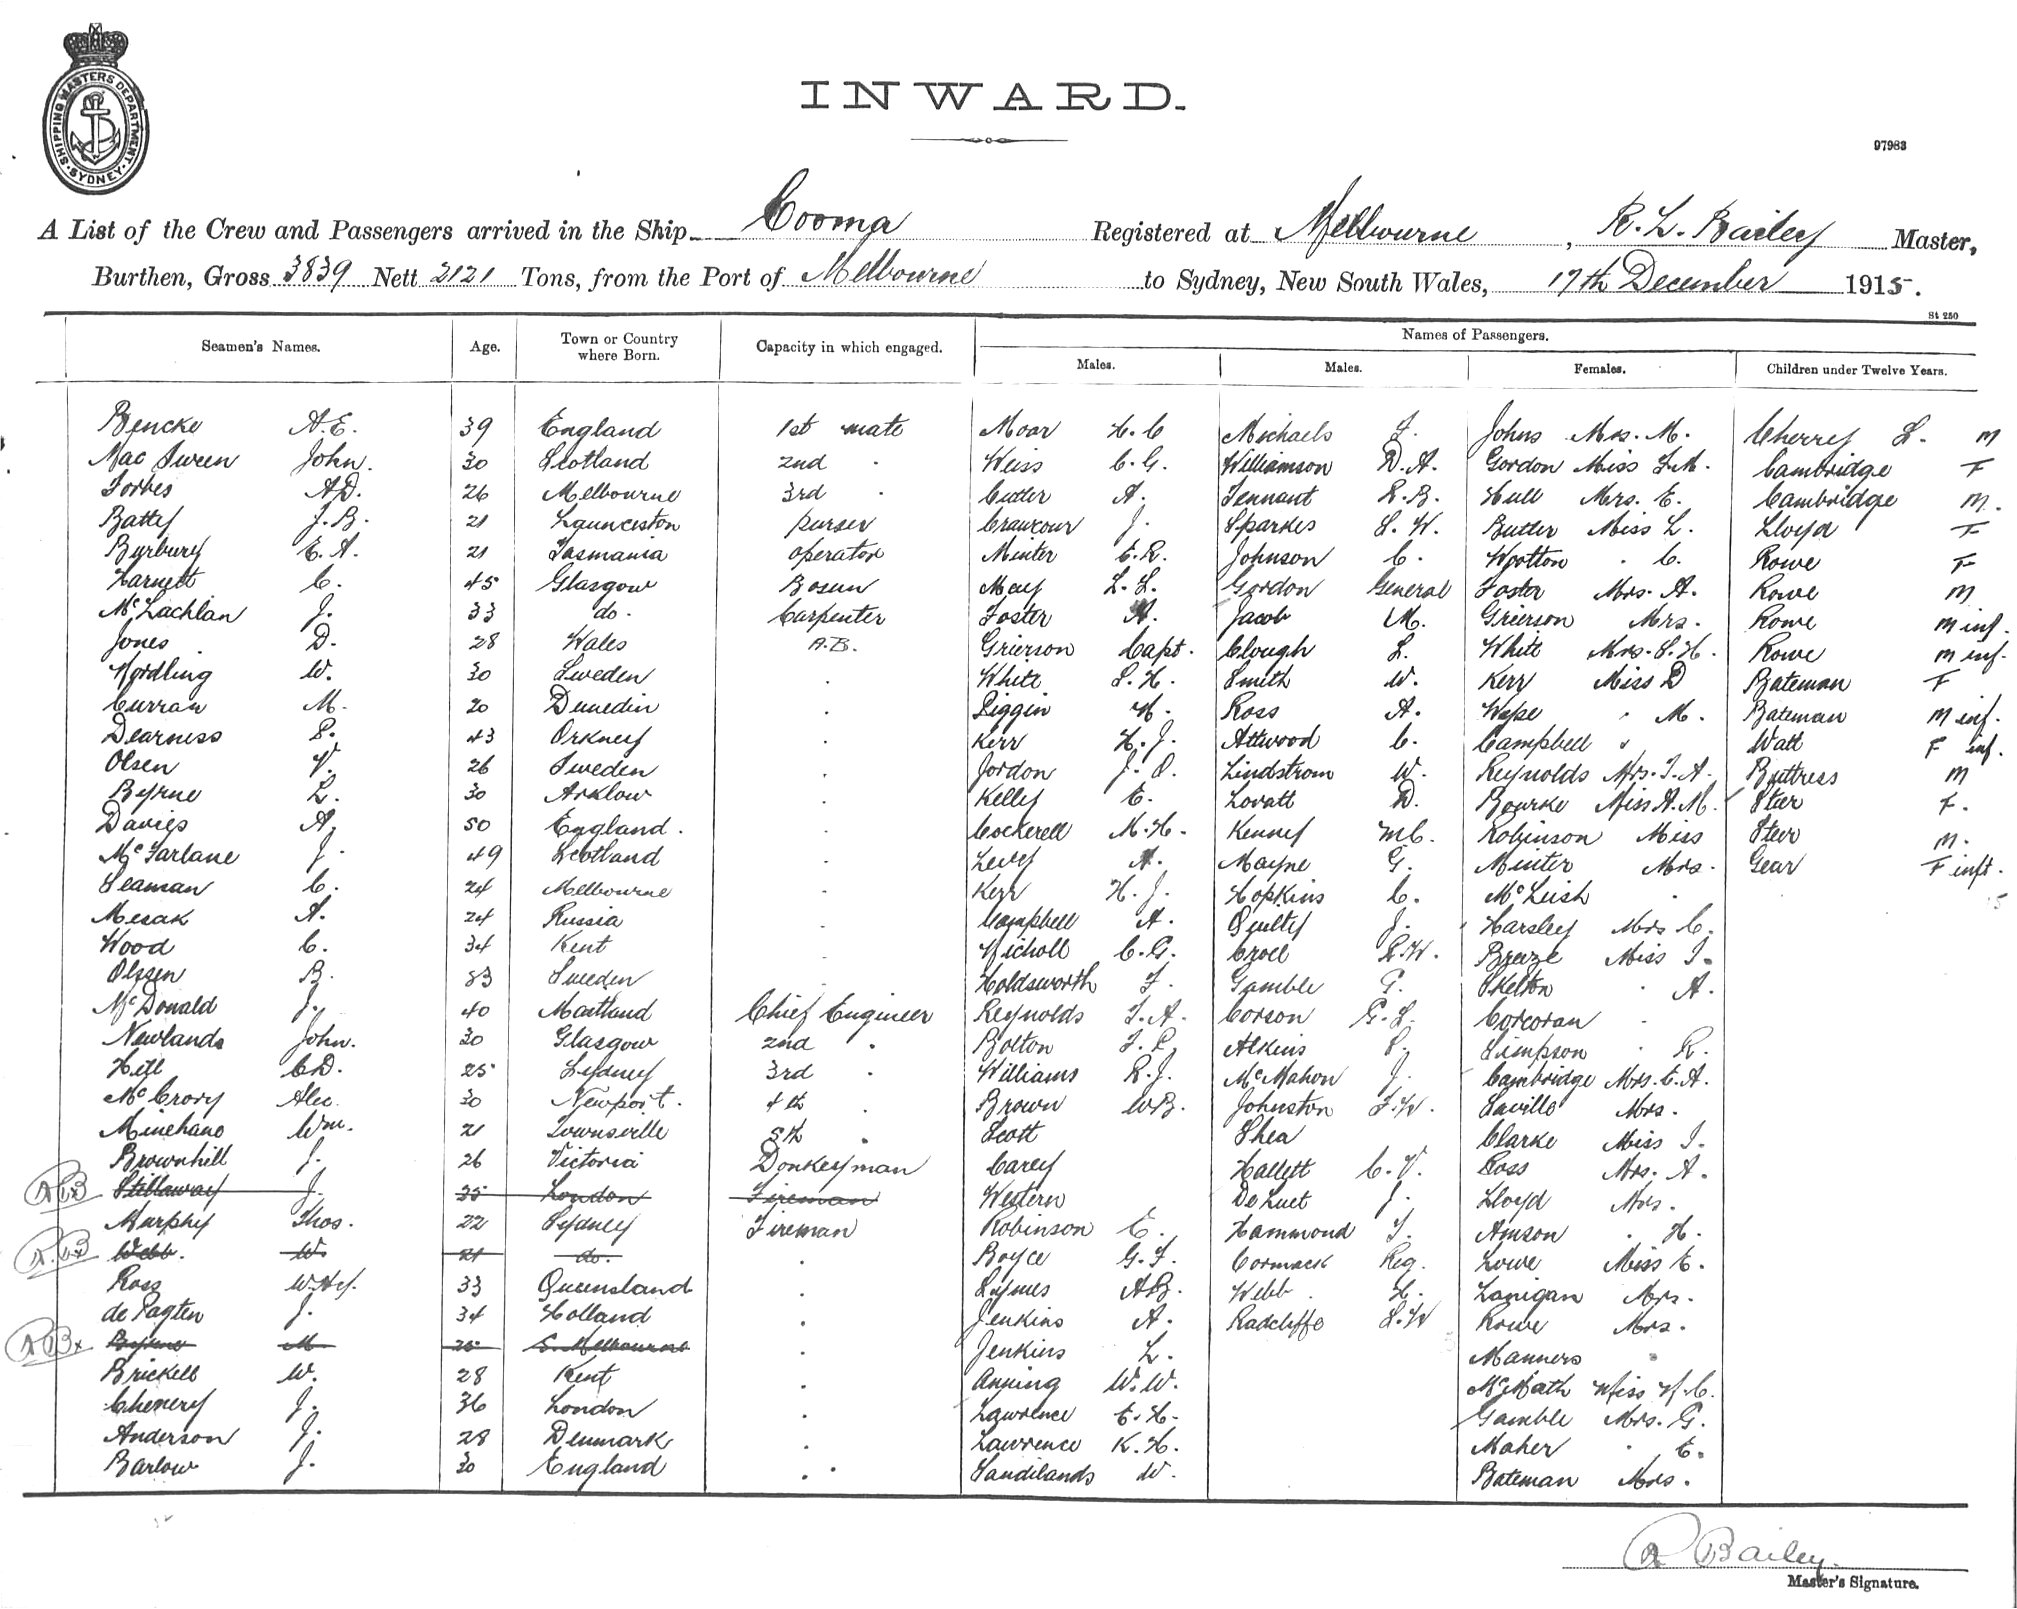 SHIPPING MASTERS DEPARTMENT. SYDNEY.
INWARD.
97983
A List of the Crew and Passengers arrived in the Ship Cooma Registered at Melbourne, R. L. Bailey Master,
Burthen, Gross 3839 Nett 2121 Tons, from the Port of Melbourne to Sydney, New South Wales, 17th December 1915.
St 250
Seamen's Names. Age. Town or Country where Born. Capacity in which engaged. Names of Passengers.
Males. Males. Females. Children under Twelve Years.
Bencke A.E. 39 England 1st mate Moar H.C Michaels F. Johns Mrs. M. Cherry L. M
Mac Sween John. 30 Scotland 2nd " Weiss C.G. Williamson D.A. Gordon Miss Cambridge F
Forbes A.D. 26 Melbourne 3rd " Cutler A. Tennant R.B. Hull Mrs. E. Cambridge M.
Batty J.B. 21 Launceston purser Crawcour J. Sparkes S.W. Butler Miss L. Lloyd F
Burbury E.A. 21 Tasmania operator Minter E.R. Johnson C. Wootton " C. Rowe F
Harnett C. 45 Glasgow Bosun May L.L. Gordon General Foster Mrs. A. Rowe M
McLachlan J. 33 do. Carpenter Foster A. Jacob M. Grierson Mrs. Rowe M inf.
Jones D. 28 Wales A.B. Grierson Capt. Clough L. White Mrs. S.H. Rowe M inf.
Nordling W. 30 Sweden " White S.H. Smith W. Kerr Miss D Bateman F
Curran M. 20 Dunedin " Piggin H. Ross A. " M. Bateman M inf.
Dearness P. 43 Orkney " Kerr H.J. Attwood C. Campbell " Watt F inf.
Olsen V. 26 Sweden " Jordon J.O. Lindstrom W. Reynolds Mrs. F.A. Buttress M
Byrne L. 30 Arklow " Kelly E. Lovatt D. Bourke Miss A.M. Steer F.
Davies A. 50 England. " Cockerell M.H. Kenney McC. Robinson Miss Steer M.
McFarlane J. 49 Scotland " Levy A. Mayne G. Minter Mrs. Gear F inft.
Seaman C. 24 Melbourne " Kerr H.J. Hopkins C. McLeish "
Mesak A. 24 Russia " Campbell A. Quilty J. Harsley Mrs C.
Wood C. 34 Kent " Nicholl C.G. Croll R.W. Breeze Miss I.
Olssen B. 33 Sweden " Holdsworth F. Gamble G. Skelton " A.
McDonald J. 40 Maitland Chief Engineer Reynolds F.A. Corson G.L. Corcoran "
Newlands John. 30 Glasgow 2nd " Bolton F.P. Atkins P. Simpson " R.
Hill C.D. 25 Sydney 3rd " Williams R.J. McMahon J. Cambridge Mrs. E.A.
McCrory Alec. 30 Newport. 4th " Brown W.B. Johnston F.W. Saville Mrs.
Minehane Wm. 21 Townsville 5th " Scott Shea Clarke Miss I.
Brownhill J. 26 Victoria Donkeyman Carey Hallett C.V. Ross Mrs. A.
Stillaway J. 35 London Fireman Western De Luet J. Lloyd Mrs.
Murphy Thos. 22 Sydney Fireman Robinson E. Hammond T. Amson " H.
Webb. W. 21 do. " Boyce G.F. Cormack Reg. Lowe Miss E.
Ross 33 Queensland " Symes A.B. Webb H. Lanigan Mrs.
de Pagten J. 34 Holland " Jenkins A. Radcliffe S.W Rowe Mrs.
Byrne M 25 S. Melbourne " Jenkins L. Manners "
Brickell W. 28 Kent " Anning W.W. McMath Miss N.C.
Chenery J. 36 London " Lawrence E.H. Gamble Mrs. G.
Anderson J. 28 Denmark " Lawrence K.H. Maher " E.
Barlow J. 30 England " Sandilands W. Bateman Mrs.
R Bailey.
Master's Signature.